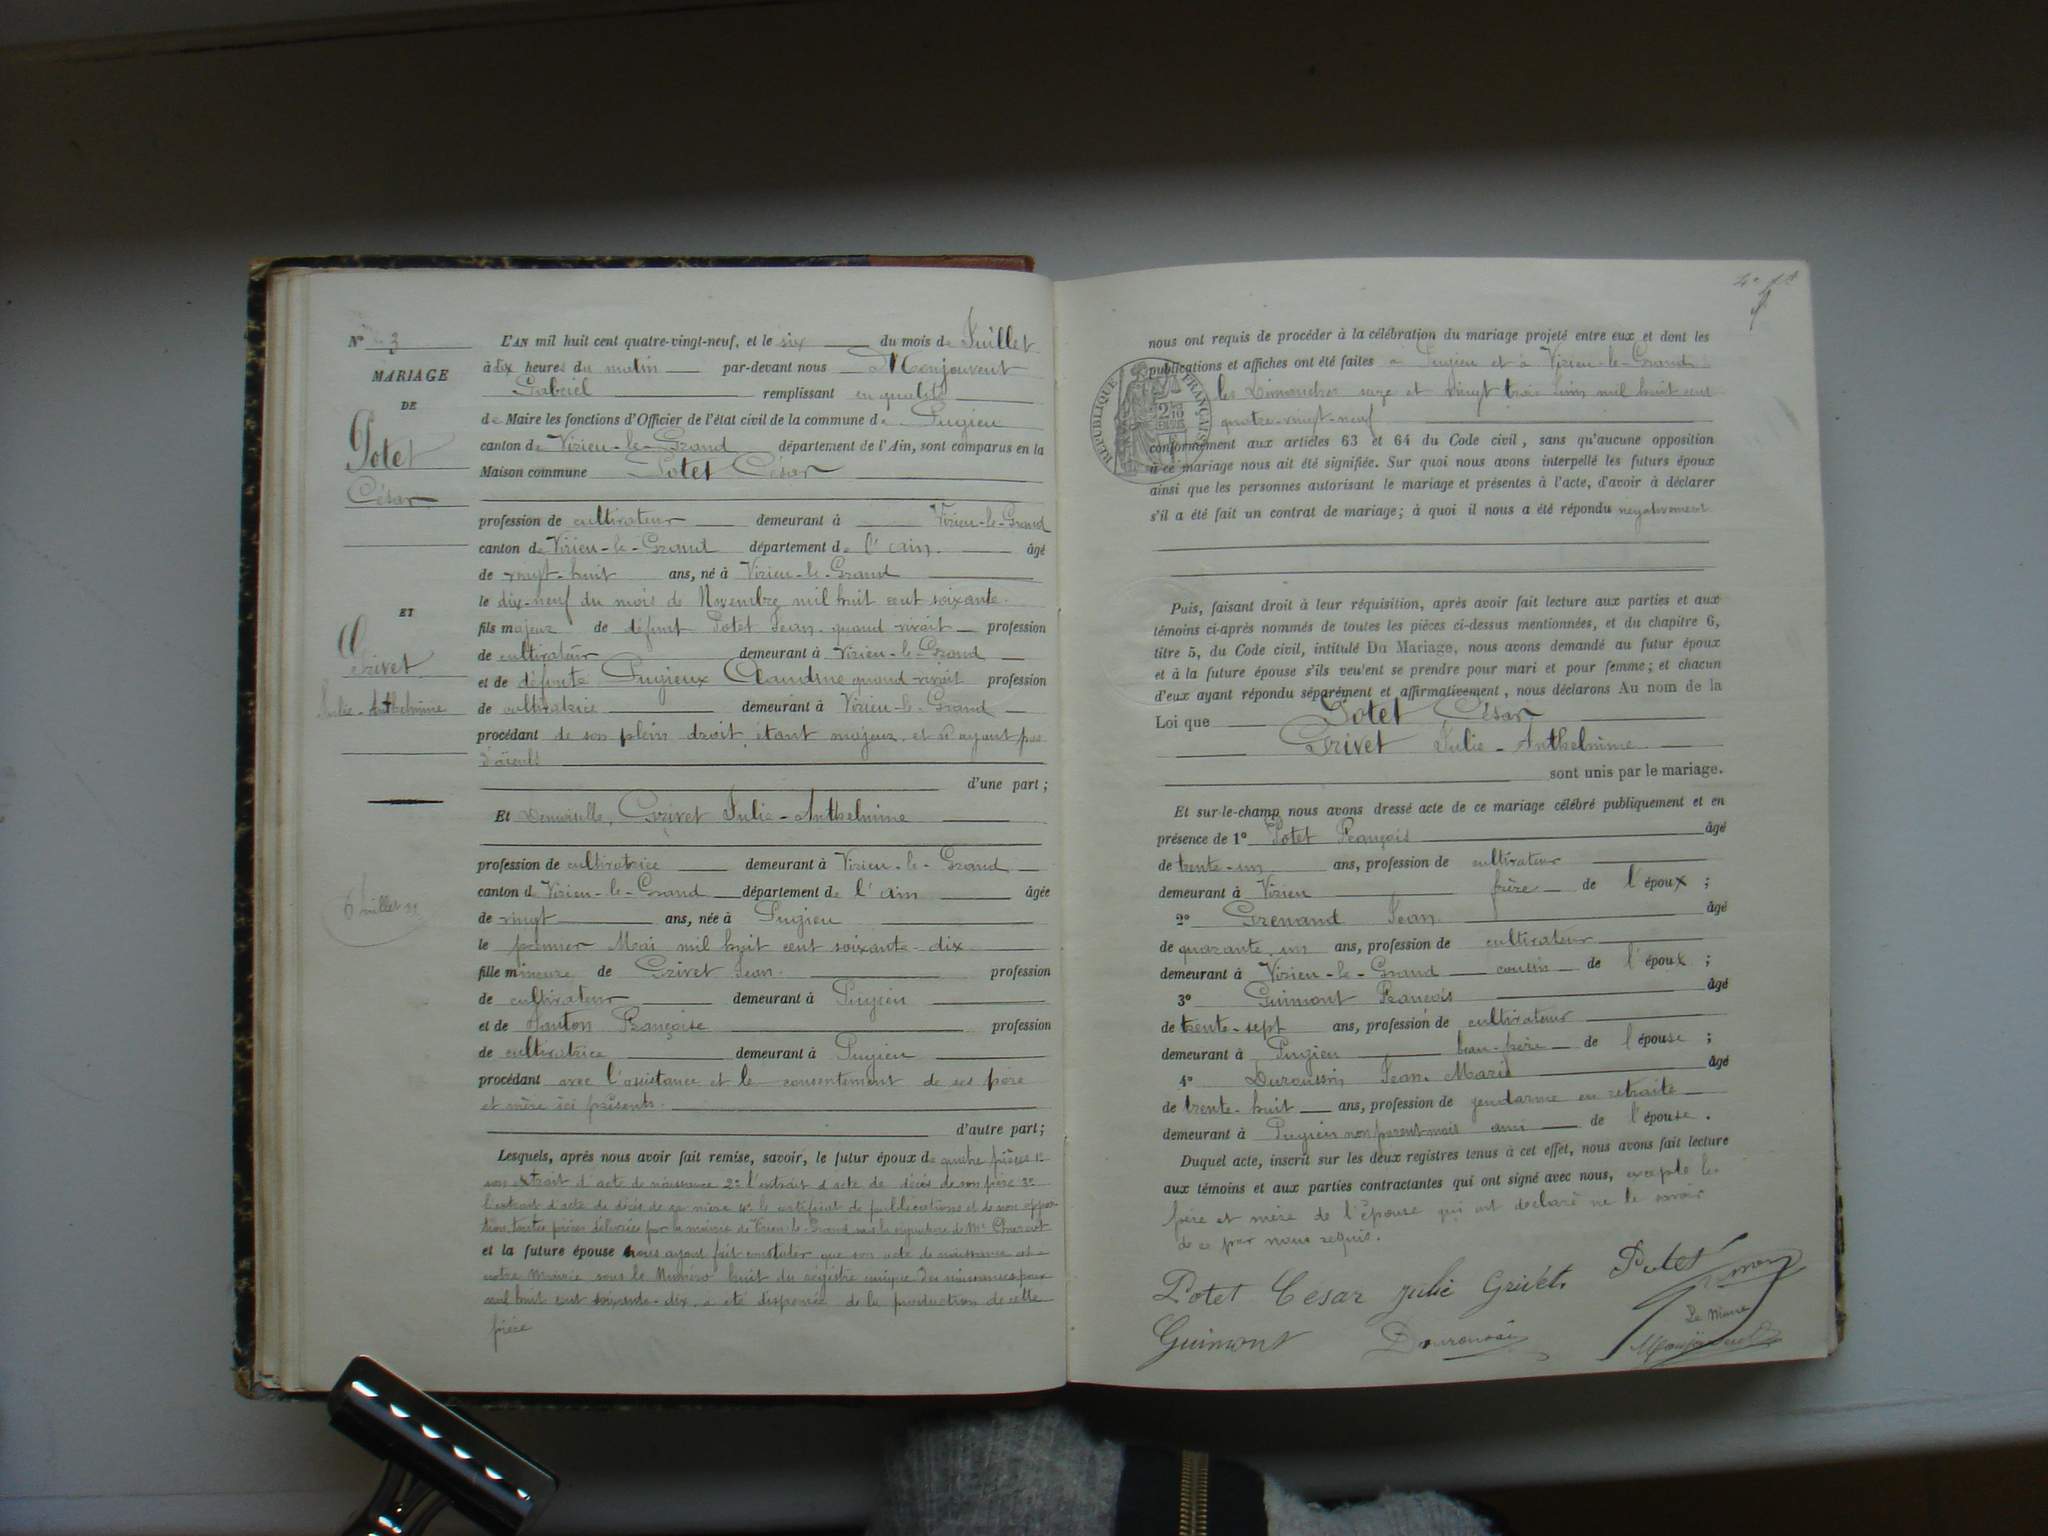 N° 3
MARIAGE
DE
Potet
César
ET
Grivet
Julie-Anthelmine
6 Juillet
L'AN mil huit cent quatre-vingt-neuf, et le six du mois de Juillet
à dix heures du matin par-devant nous Monjouvent
Gabriel remplissant en qualité
de Maire les fonctions d'Officier de l'état civil de la commune de Pugieu
canton de Virieu-le-Grand département de l'Ain, sont comparus en la
Maison commune Potet César
profession de cultivateur demeurant à Virieu-le-Grand
canton de Virieu-le-Grand département de l'ain. âgé
de vingt-huit ans, né à Virieu-le-Grand
le dix-neuf du mois de Novembre mil huit cent soixante.
fils majeur de défunt Potet Jean quand vivait profession
de cultivateur demeurant à Virieu-le-Grand
et de défunte Pugieux Claudine quand vivait profession
de cultivatrice demeurant à Virieu-le-Grand
procédant de son plein droit, étant majeur et n'ayant pas
d'aïeuls
d'une part ;
Et Demoiselle, Grivet Julie-Anthelmine
profession de cultivatrice demeurant à Virieu-le-Grand
canton d Virieu-le-Grand département de l'ain âgée
de vingt ans, née à Pugieu
le premier Mai mil huit cent soixante-dix
fille mineure de Grivet Jean. profession
de cultivateur demeurant à Pugieu
et de Janton Françoise profession
de cultivatrice demeurant à Pugieu
procédant avec l'assistance et le consentement de ses père
et mère ici présents.
d'autre part ;
Lesquels, après nous avoir fait remise, savoir, le futur époux de quatre pièces 1°
son extrait d'acte de naissance 2° l'extrait d'acte de décès de son père 3°
l'extrait d'acte de décès de sa mère 4° le certificat de publications et de non oppo-
sition toutes pièces délivrées par la mairie de Virieu-le-Grand sous la signature de Mr
et la future épouse nous ayant fait constater que son acte de naissance est à
notre Mairie sous le Numéro huit du régistre unique des naissances pour
mil huit cent soixante-dix, a été dispensée de la production de cette
pièce
RÉPUBLIQUE FRANÇAISE
nous ont requis de procéder à la célébration du mariage projeté entre eux et dont les
publications et affiches ont été faites à Pugieu et à Virieu-le-Grand
les Dimanches seize et vingt trois Juin mil huit cent
quatre-vingt-neuf
conformément aux articles 63 et 64 du Code civil, sans qu'aucune opposition
à ce mariage nous ait été signifiée. Sur quoi nous avons interpellé les futurs époux
ainsi que les personnes autorisant le mariage et présentes à l'acte, d'avoir à déclarer
s'il a été fait un contrat de mariage ; à quoi il nous a été répondu négativement
Puis, faisant droit à leur réquisition, après avoir fait lecture aux parties et aux
témoins ci-après nommés de toutes les pièces ci-dessus mentionnées, et du chapitre 6,
titre 5, du Code civil, intitulé Du Mariage, nous avons demandé au futur époux
et à la future épouse s'ils veulent se prendre pour mari et pour femme ; et chacun
d'eux ayant répondu séparément et affirmativement, nous déclarons Au nom de la
Loi que Potet César
Grivet Julie-Anthelmine.
sont unis par le mariage.
Et sur-le-champ nous avons dressé acte de ce mariage célébré publiquement et en
présence de 1° Potet François âgé
de trente-un ans, profession de cultivateur
demeurant à Virieu frère de l'époux ;
2° Grenand Jean. âgé
de quarante-un ans, profession de cultivateur
demeurant à Virieu-le-Grand cousin de l'époux ;
3° Guimont François âgé
de trente-sept ans, profession de cultivateur
demeurant à Pugieu beau-frère de l'épouse ;
4° Duroussin Jean Marie âgé
de trente-huit ans, profession de gendarme en retraite
demeurant à Pugieu non parent mais ami de l'épouse.
Duquel acte, inscrit sur les deux registres tenus à cet effet, nous avons fait lecture
aux témoins et aux parties contractantes qui ont signé avec nous, excepté les
père et mère de l'épouse qui ont déclaré ne le savoir
de ce par nous requis.
Potet César Julie Grivet Potet
Le Maire
Guimont Duroussin Monjouvent